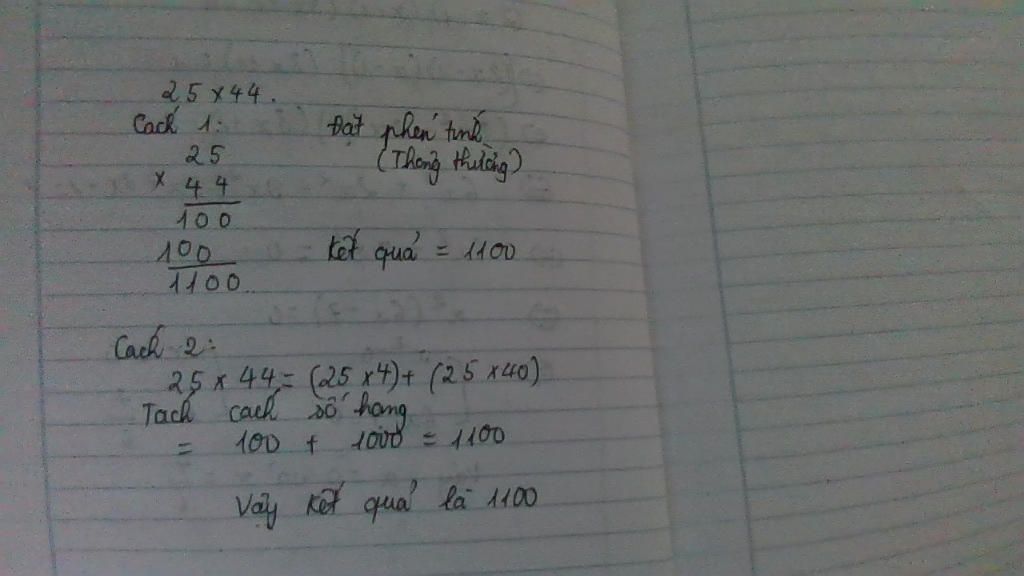 25 x 44.
Cách 1: Đặt phép tính
25 (Thông thường)
x 44
100
100 Kết quả = 1100
1100
Cách 2:
25 x 44 = (25 x 4) + (25 x 40)
Tách cách số hạng
= 100 + 1000 = 1100
Vậy kết quả là 1100